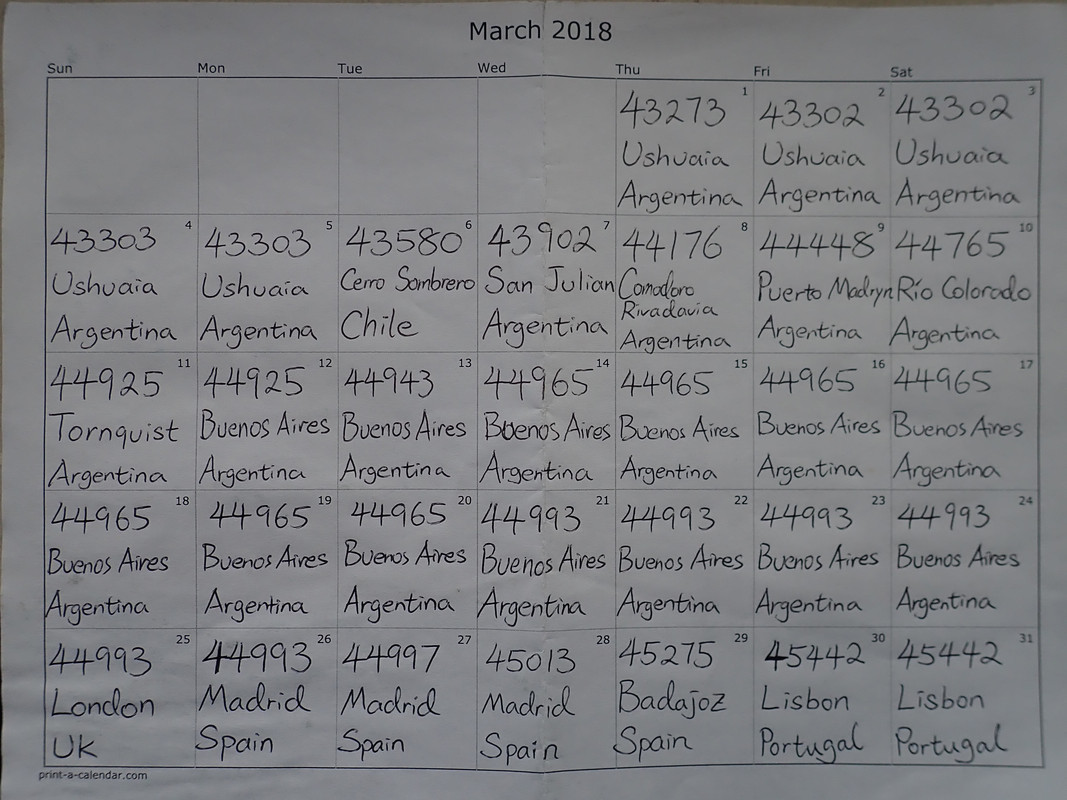 March 2018
Sun Mon Tue Wed Thu Fri Sat
1 2 3
43273 43302 43302
Ushuaia Ushuaia Ushuaia
Argentina Argentina Argentina
4 5 6 7 8 9 10
43303 43303 43580 43902 44176 44448 44765
Ushuaia Ushuaia Cerro Sombrero San Julian Comodoro Puerto Madryn Río Colorado
Rivadavia
Argentina Argentina Chile Argentina Argentina Argentina Argentina
11 12 13 14 15 16 17
44925 44925 44943 44965 44965 44965 44965
Tornquist Buenos Aires Buenos Aires Buenos Aires Buenos Aires Buenos Aires Buenos Aires
Argentina Argentina Argentina Argentina Argentina Argentina Argentina
18 19 20 21 22 23 24
44965 44965 44965 44993 44993 44993 44993
Buenos Aires Buenos Aires Buenos Aires Buenos Aires Buenos Aires Buenos Aires Buenos Aires
Argentina Argentina Argentina Argentina Argentina Argentina Argentina
25 26 27 28 29 30 31
44993 44993 44997 45013 45275 45442 45442
London Madrid Madrid Madrid Badajoz Lisbon Lisbon
UK Spain Spain Spain Spain Portugal Portugal
print-a-calendar.com